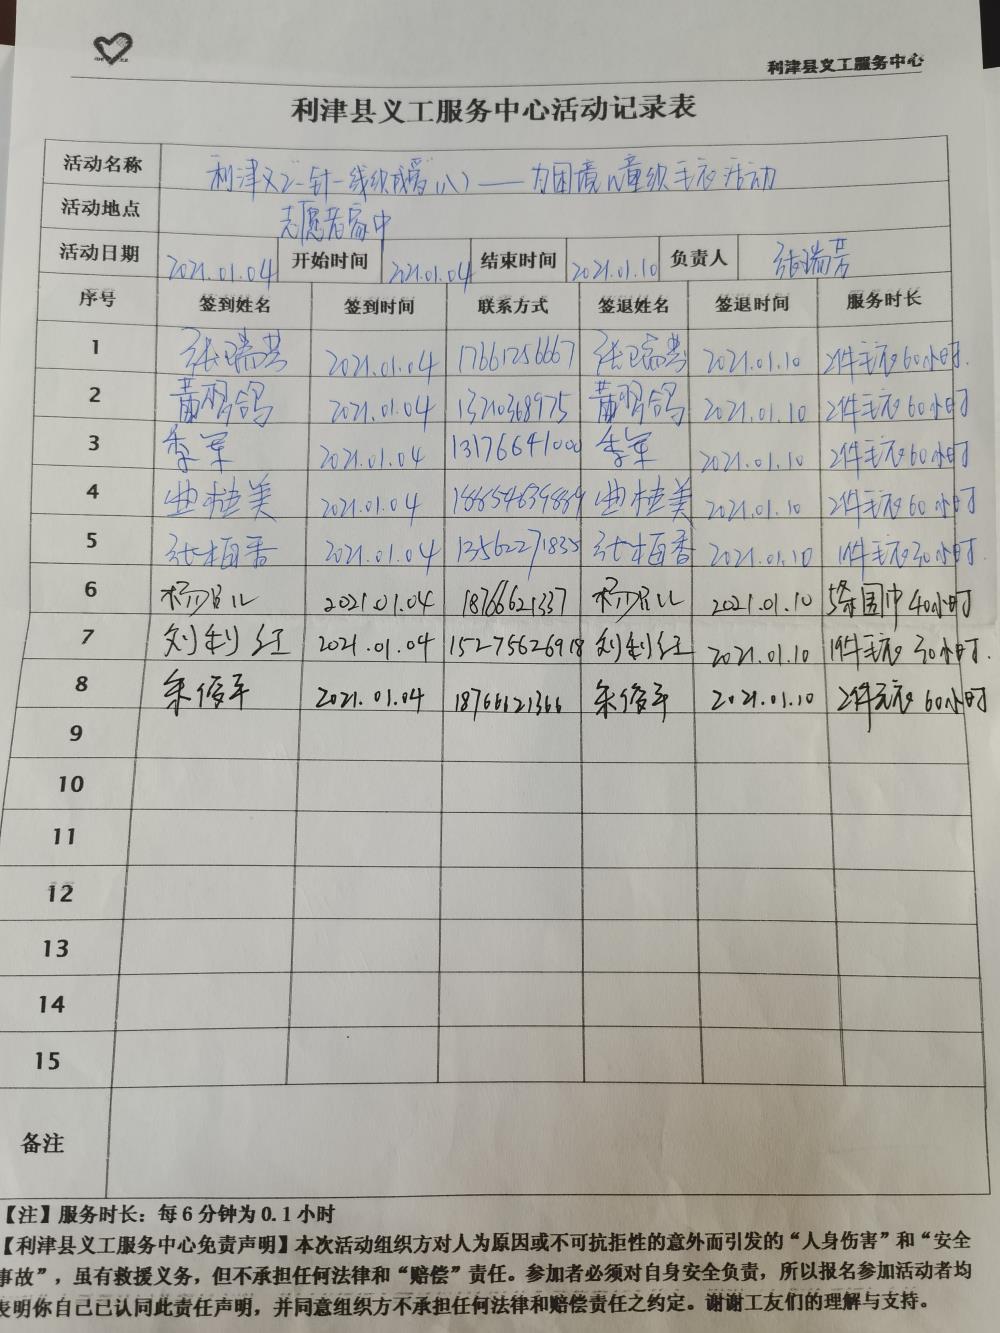 利津县义工服务中心
利津县义工服务中心活动记录表
活动名称 利津义工"一针一线织成爱"(八)——为困境儿童织毛衣活动
活动地点 志愿者家中
活动日期 2021.01.04 开始时间 2021.01.04 结束时间 2021.01.10 负责人 张瑞芳
序号 签到姓名 签到时间 联系方式 签退姓名 签退时间 服务时长
1 张瑞芳 2021.01.04 17661256667 张瑞芳 2021.01.10 2件毛衣60小时.
2 黄 2021.01.04 13210368975 黄 2021.01.10 2件毛衣60小时
3 李军 2021.01.04 13176641000 李军 2021.01.10 2件毛衣60小时
4 曲桂美 2021.01.04 18865463989 曲桂美 2021.01.10 2件毛衣60小时
5 张梅香 2021.01.04 13562271835 张梅香 2021.01.10 1件毛衣30小时.
6 杨 2021.01.04 18766621337 杨 2021.01.10 5条围巾40小时
7 刘利红 2021.01.04 15275626918 刘利红 2021.01.10 1件毛衣30小时.
8 朱俊平 2021.01.04 18766621366 朱俊平 2021.01.10 2件毛衣60小时
9
10
11
12
13
14
15
备注
【注】服务时长：每6分钟为0.1小时
【利津县义工服务中心免责声明】本次活动组织方对人为原因或不可抗拒性的意外而引发的“人身伤害”和“安全
事故”，虽有救援义务，但不承担任何法律和“赔偿”责任。参加者必须对自身安全负责，所以报名参加活动者均
表明你自己已认同此责任声明，并同意组织方不承担任何法律和赔偿责任之约定。谢谢工友们的理解与支持。